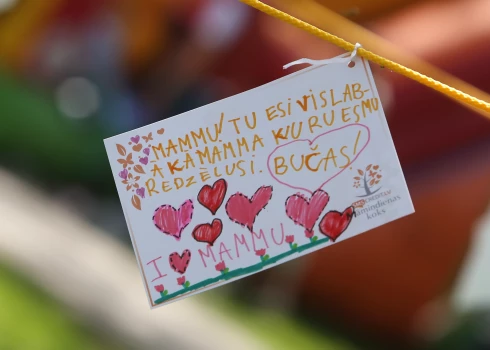 MAMMU! TU ESI VISLAB-
AKA MAMMA KURU ESMU
REDZĒLUSI. BUČAS!
I MAMMU
koks